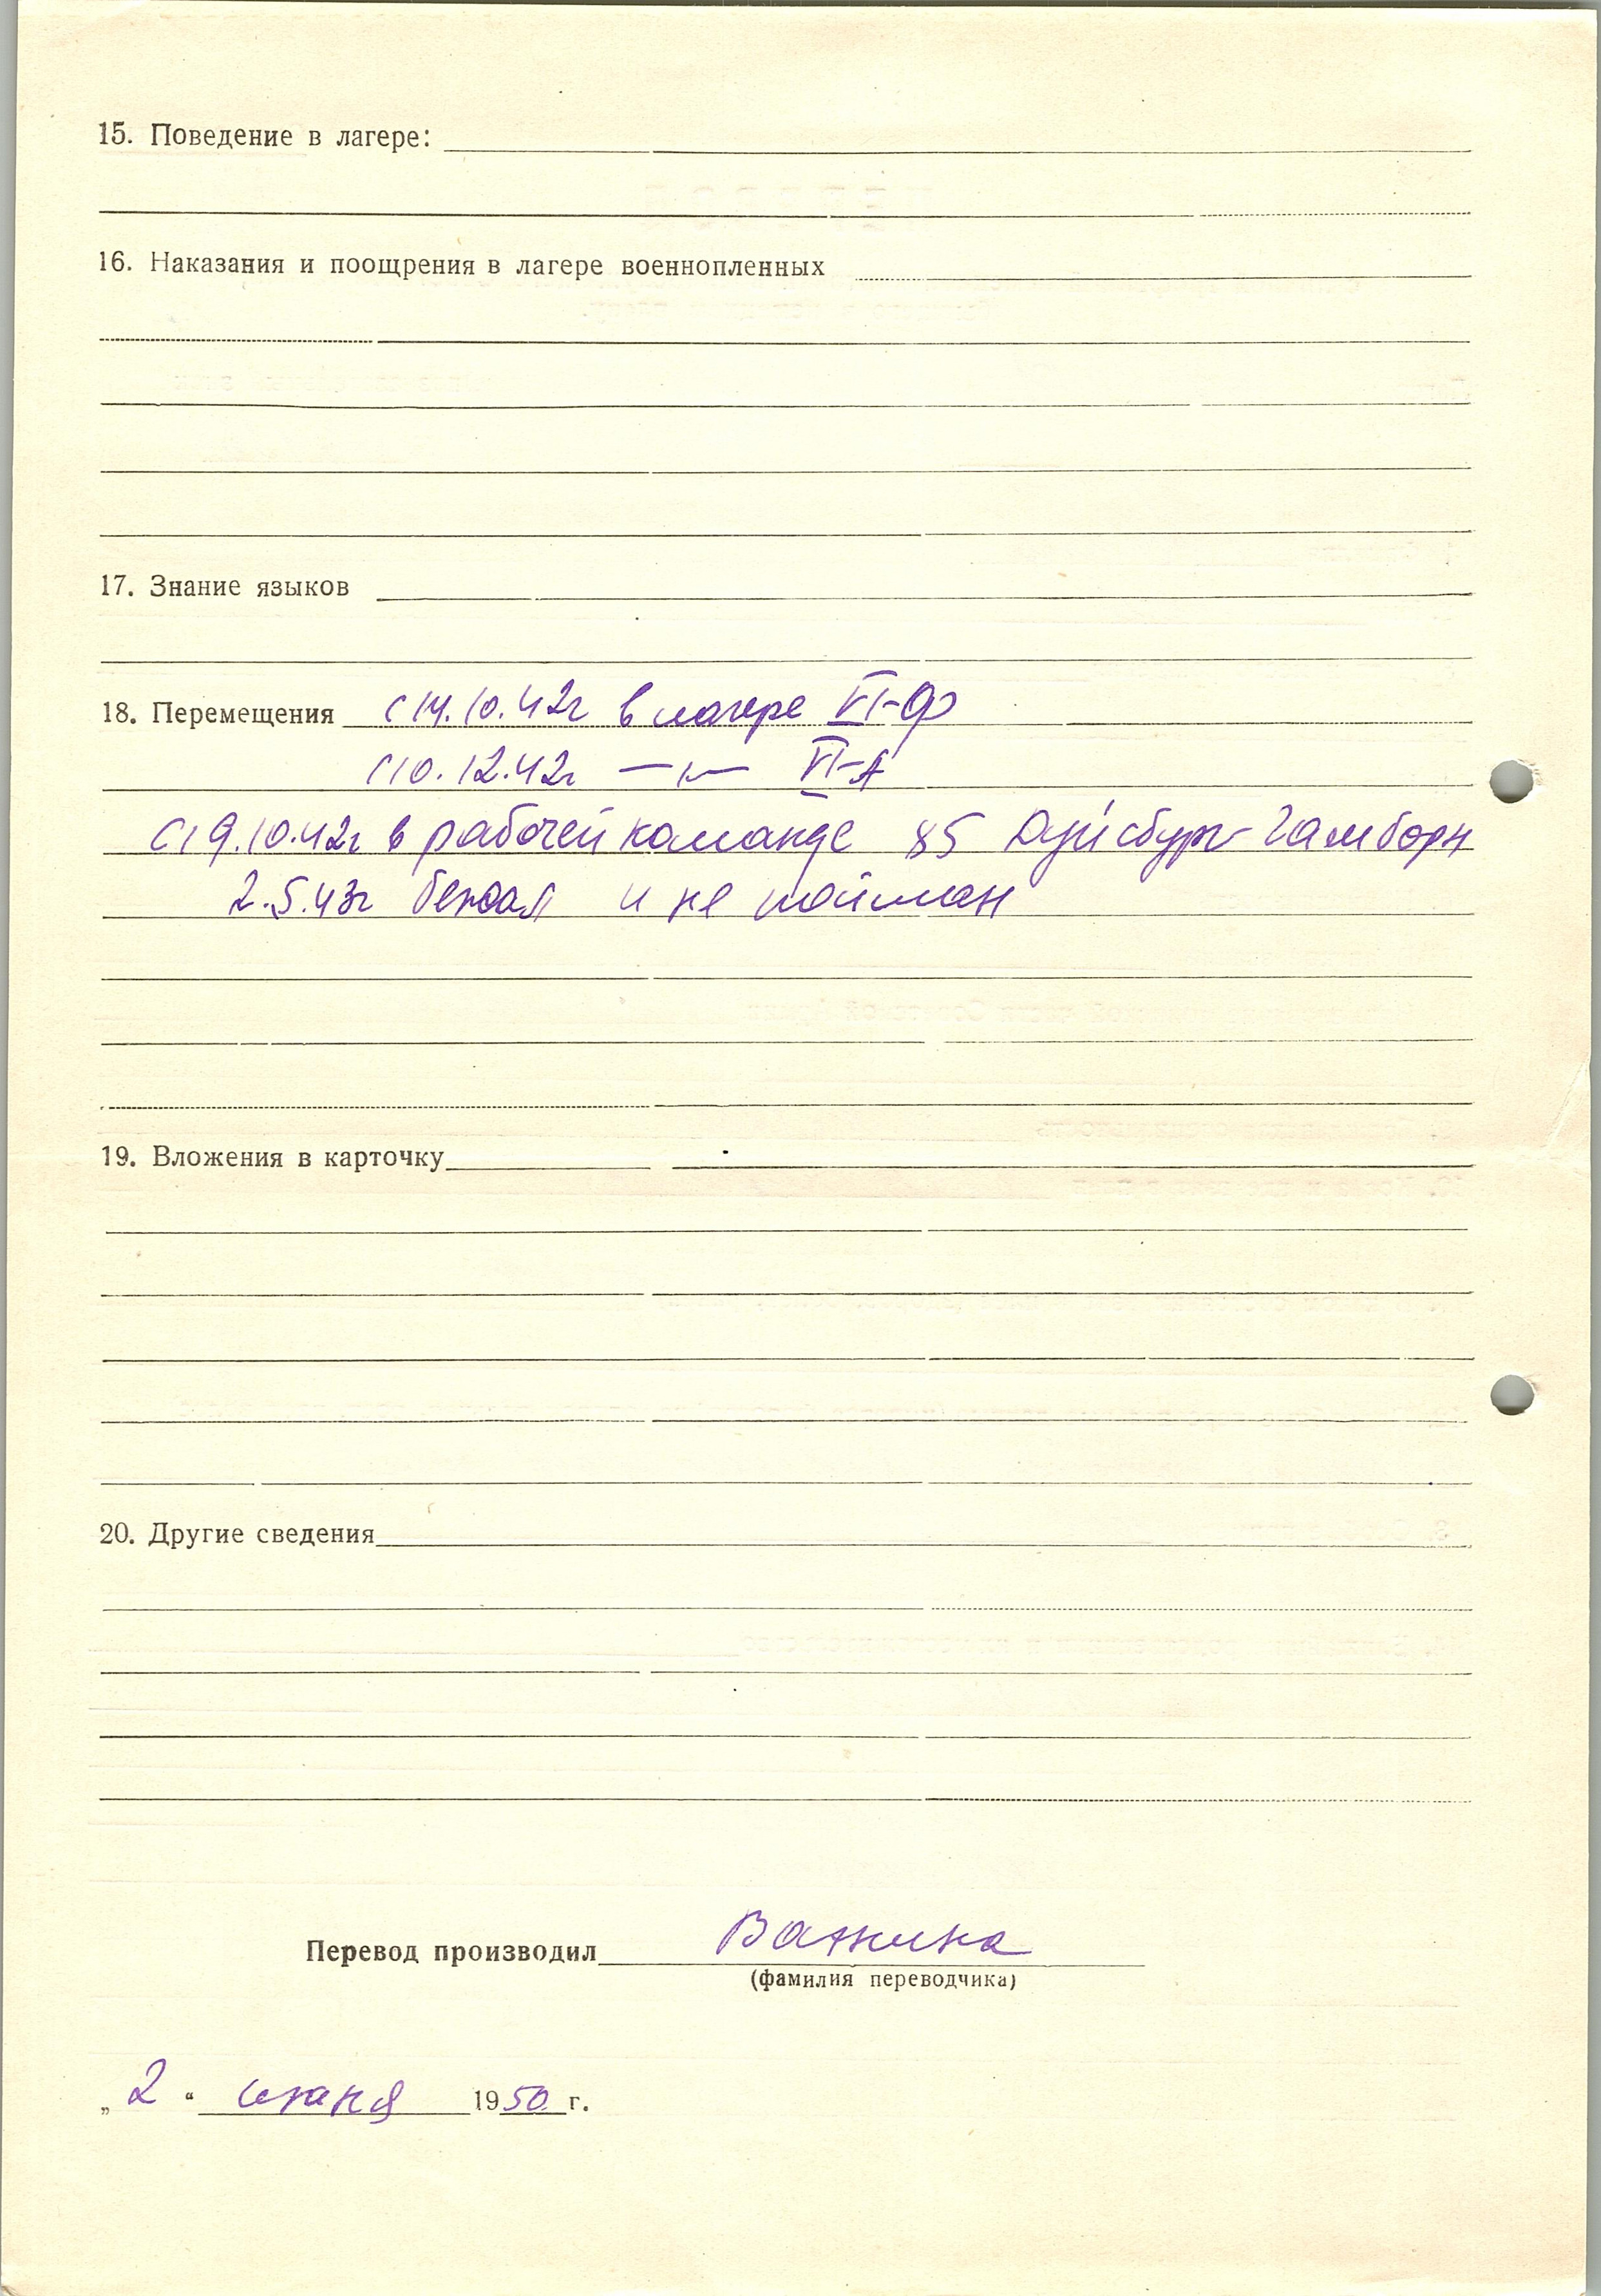 15. Поведение в лагере:
16. Наказания и поощрения в лагере военнопленных
17. Знание языков
18. Перемещения с 14.10.42г в лагере VI-Ф
с 10.12.42г —〃— VI-А
с 19.10.42г в рабочей команде 85 Дуйсбург-Гамборн
2.5.43г бежал и не пойман
19. Вложения в карточку
20. Другие сведения
Перевод производил
(фамилия переводчика)
„2“ июня 1950 г.